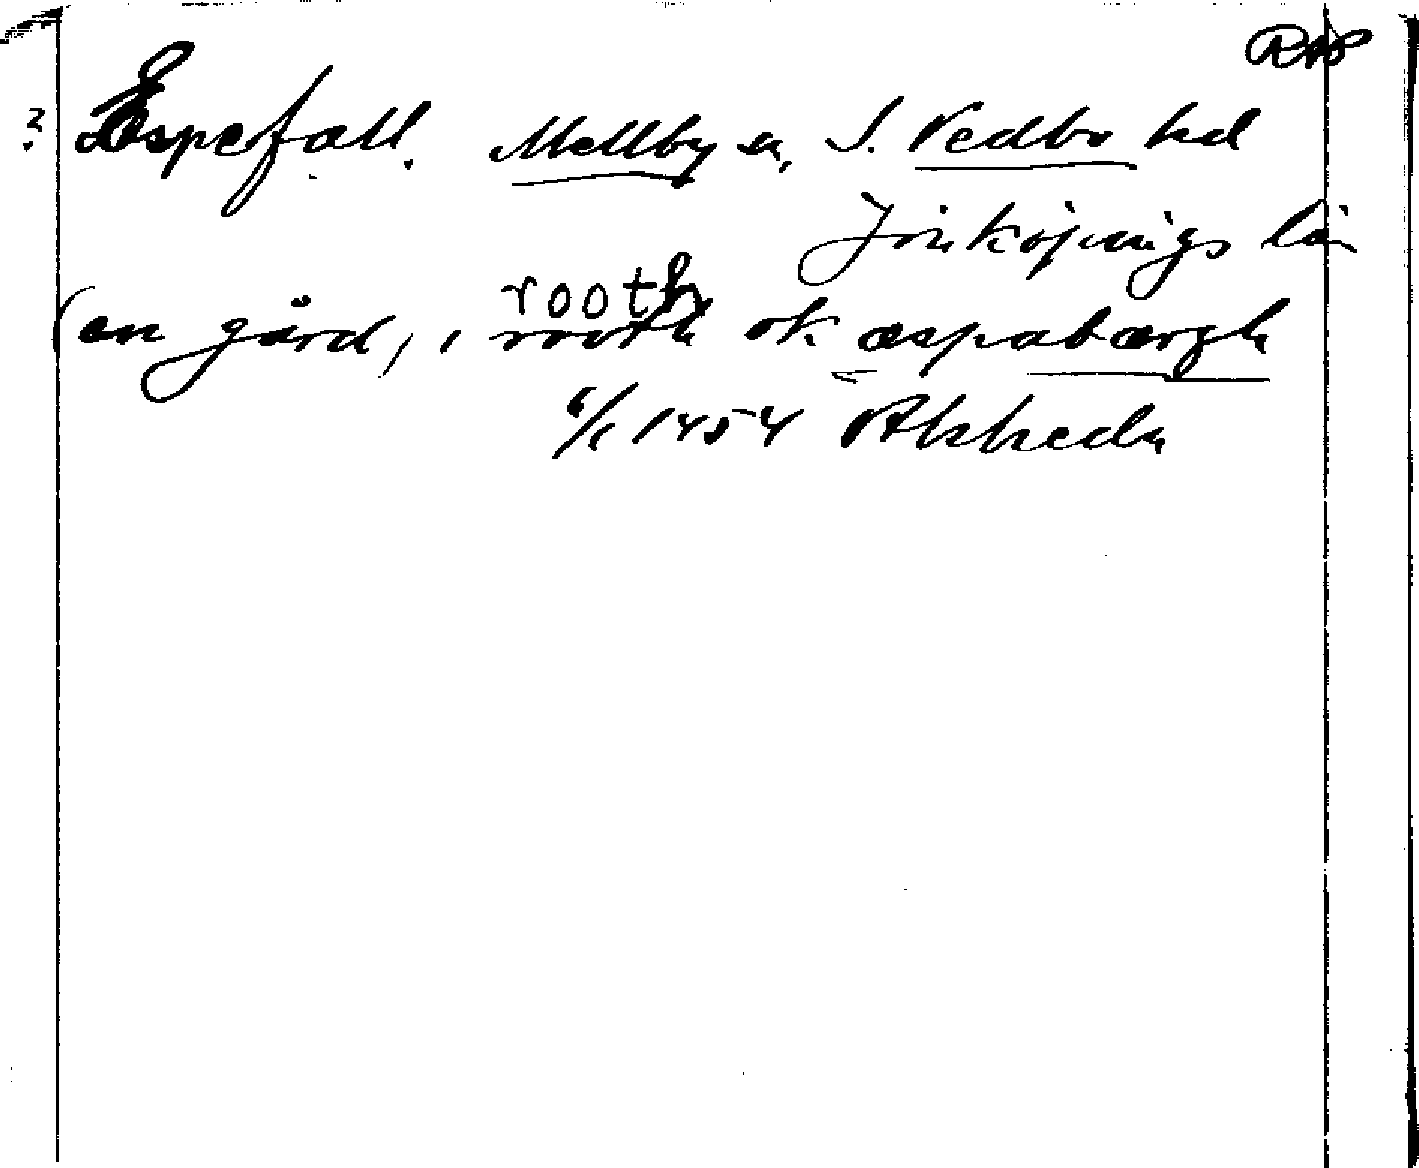 ? Espefall. Mellby sn, S. Vedbo hd
Jönköpings län
rooth
(en gård) i rooth ok æspabærgh
6/1 1454 Alsheda